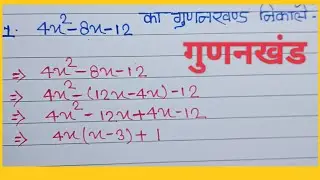 1. 4x²-8x-12 का गुणनखण्ड निकालें-
गुणनखंड
⇒ 4x²-8x-12
⇒ 4x²-(12x-4x)-12
⇒ 4x²-12x+4x-12
⇒ 4x(x-3)+1